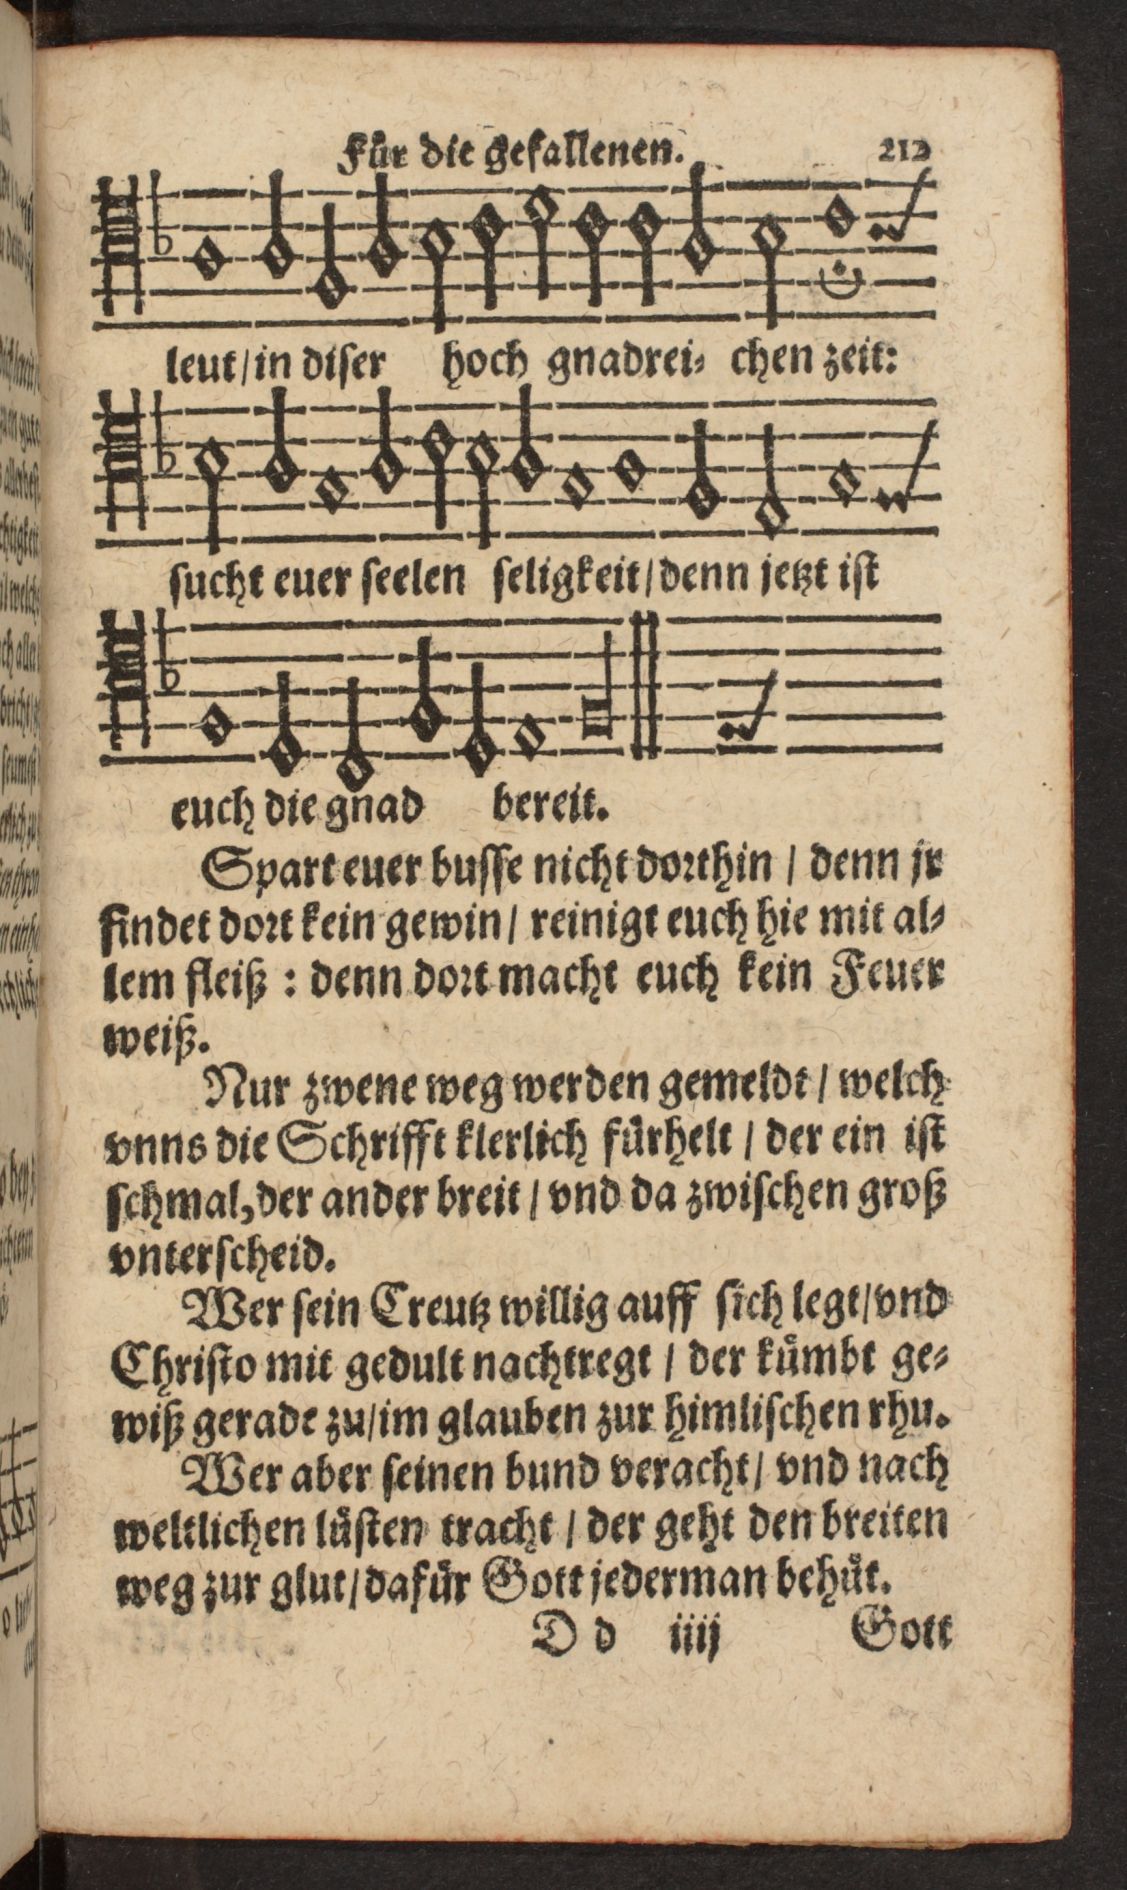 Für die gefallenen. 212
leut/in diser hoch gnadrei⸗ chen zeit:
sucht euer seelen seligkeit/denn jetzt ist
euch die gnad bereit.
Spart euer busse nicht dorthin / denn jr
findet dort kein gewin / reinigt euch hie mit al⸗
lem fleiß : denn dort macht euch kein Feuer
weiß.
Nur zwene weg werden gemeldt / welch
vnns die Schrifft klerlich fürhelt / der ein ist
schmal, der ander breit / vnd da zwischen groß
vnterscheid.
Wer sein Creutz willig auff sich legt/vnd
Christo mit gedult nachtregt / der kůmbt ge⸗
wiß gerade zu/im glauben zur himlischen rhu.
Wer aber seinen bund veracht/ vnd nach
weltlichen lůsten tracht / der geht den breiten
weg zur glut/dafůr Gott jederman behůt.
D d iiij Gott